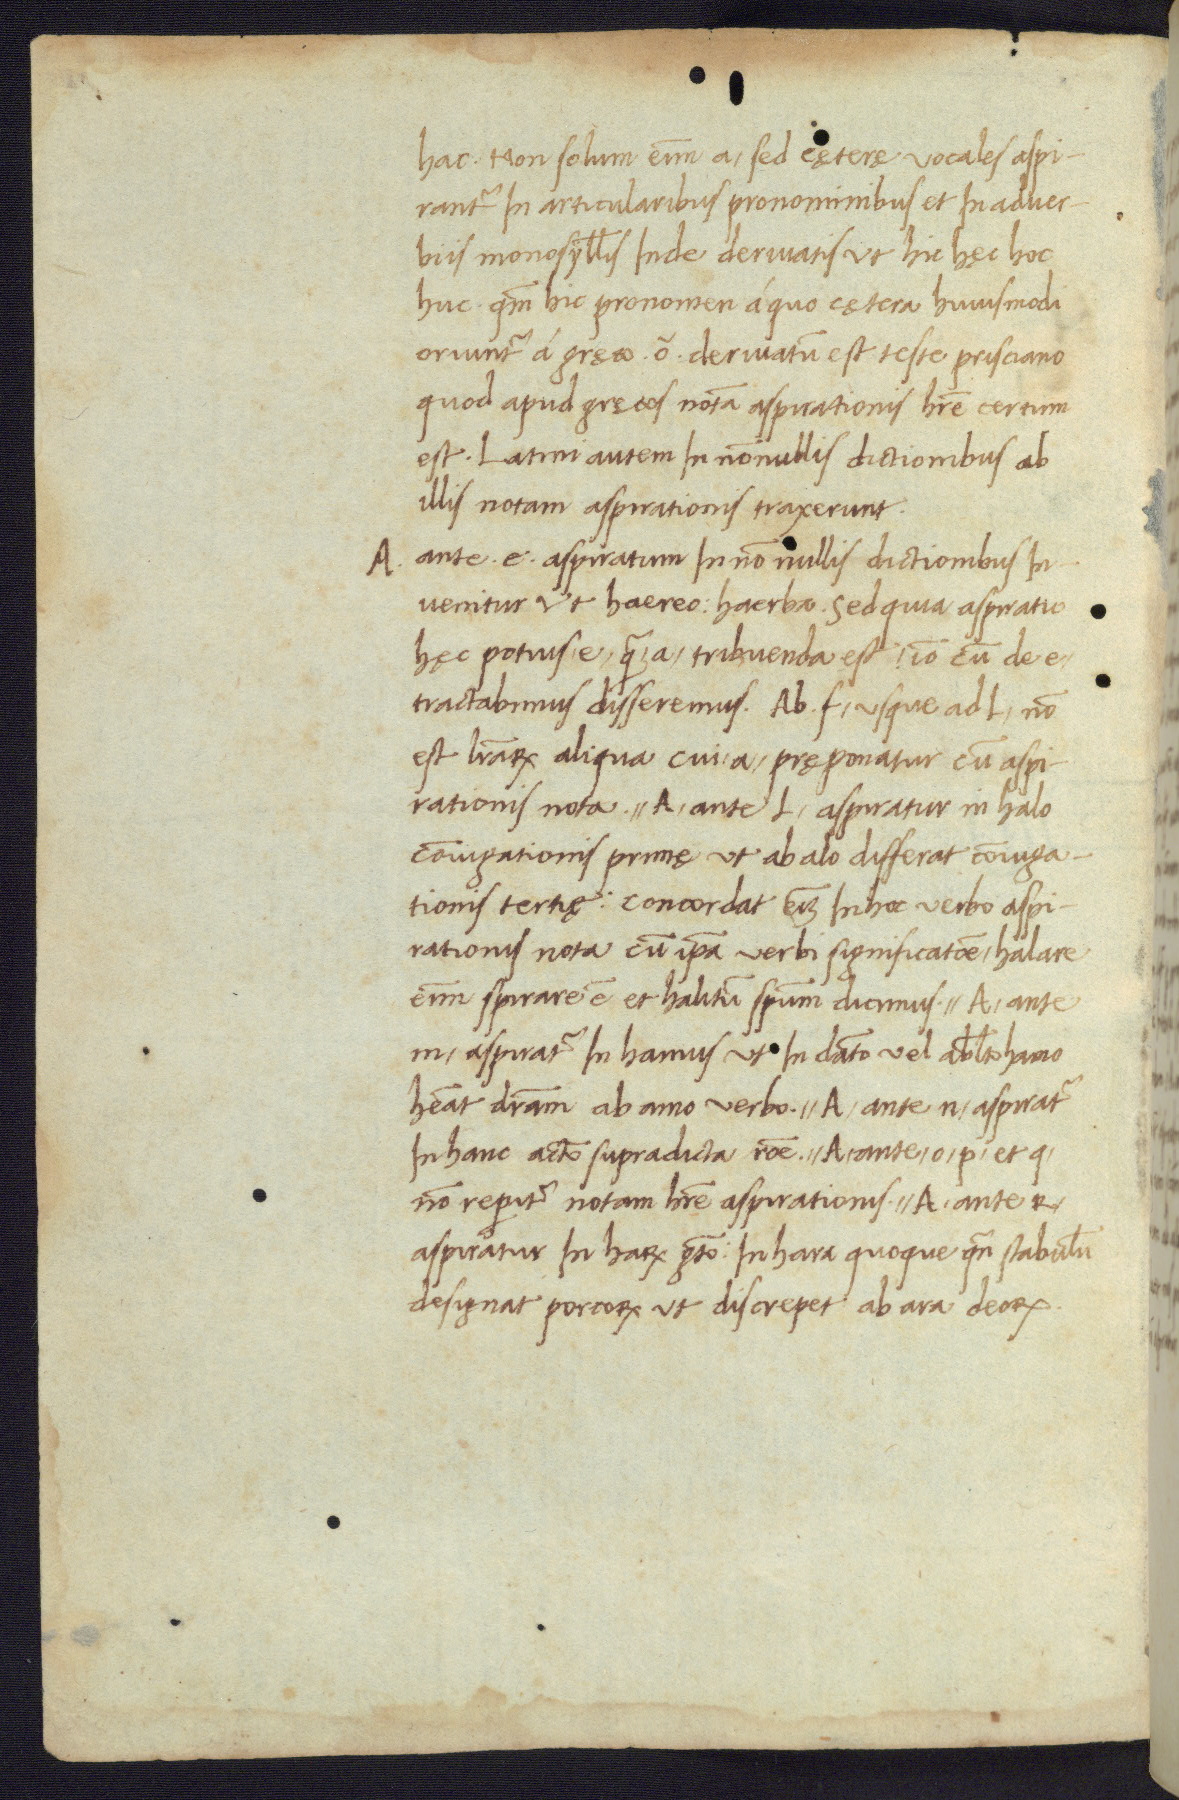 hac. Non solum eĩm a, sed cęterę vocales aspi-
rantᷣ In articularibus pronominibus et In aduer-
biis monosyll̃is Inde deriuatis vt hic hęc hoc
huc. qm̃ hic pronomen á quo cętera huiusmodi
oriuntᷣ á gręco .õ. deriuatũ est teste prisciano
quod apud gręcos notã aspirationis hr̃e certum
est. Latini autem In nõnullis dictionibus ab
illis notam aspirationis traxerunt.
A. ante .e. aspiratum In nõ nullis dictionibus In-
uenitur Vt haereo: haerba. Sed quia aspiratio
hęc potius, e, q̃ȝ a, tribuenda est: iõ cũ de e,
tractabimus disseremus. Ab. f, vsque ad l, nõ
est lr̃aꝝ aliqua cui, a, pręponatur cũ aspi-
rationis nota. // A, ante l, aspiratur in halo
cõiugationis primę vt ab alo differat cõiuga-
tionis tertię: concordat eĩȝ In hoc verbo aspi-
rationis nota cũ ip̃a verbi significatõe, halare
eĩm spirare ẽ et halitũ spũm dicimus. // A, ante
m, aspiratᷣ In hamus vt In dãto vel abl̃to hamo
hẽat dr̃am ab amo verbo. // A, ante n, aspiratᷣ
In hanc actõ supradicta rõe. // A, ante, o, p, et q,
nõ reperitᷣ notam hr̃e aspirationis. // A, ante R,
aspiratur In haꝝ g̃tõ: In hara quoque qñ stabulũ
designat porcoꝝ vt discrepet ab ara deoꝝ.